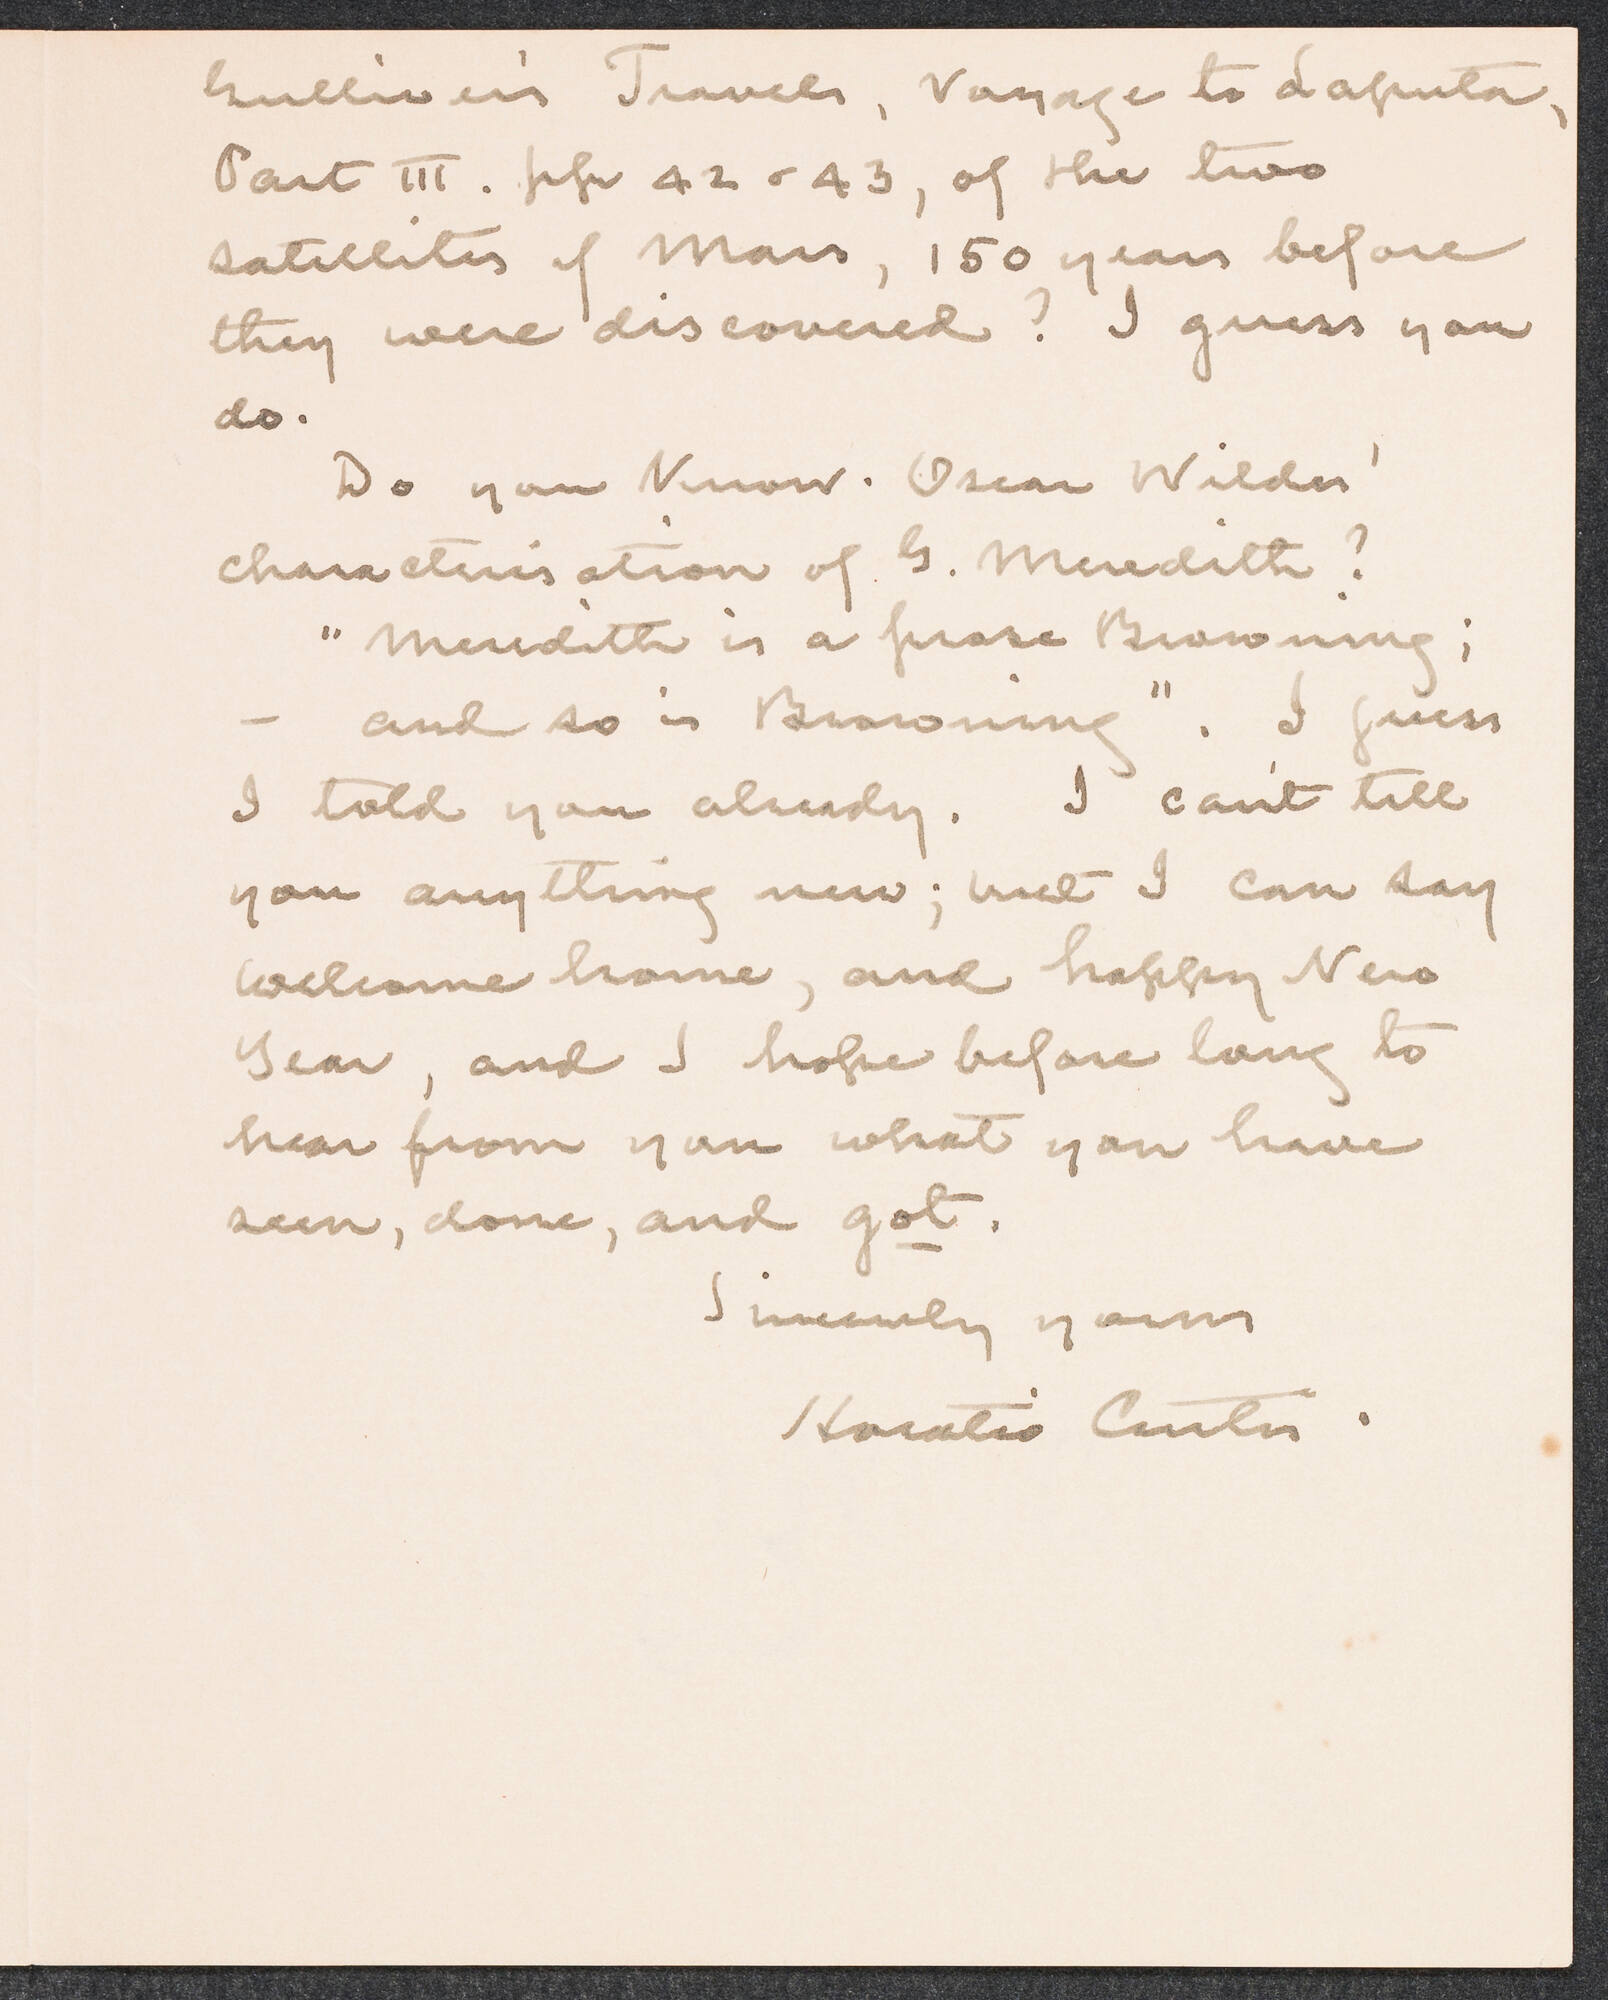 Gulliver's Travels, Voyage to Laputa,
Part III. pp 42 & 43, of the two
satellites of Mars, 150 years before
they were discovered? I guess you
do.
Do you know. Oscar Wildes'
characterisation of G. Meredith?
"Meredith is a prose Browning;
— and so is Browning". I guess
I told you already. I can't tell
you anything new; but I can say
welcome home, and happy New
Year, and I hope before long to
hear from you what you have
seen, done, and got.
Sincerely yours
Horatio Curtis.